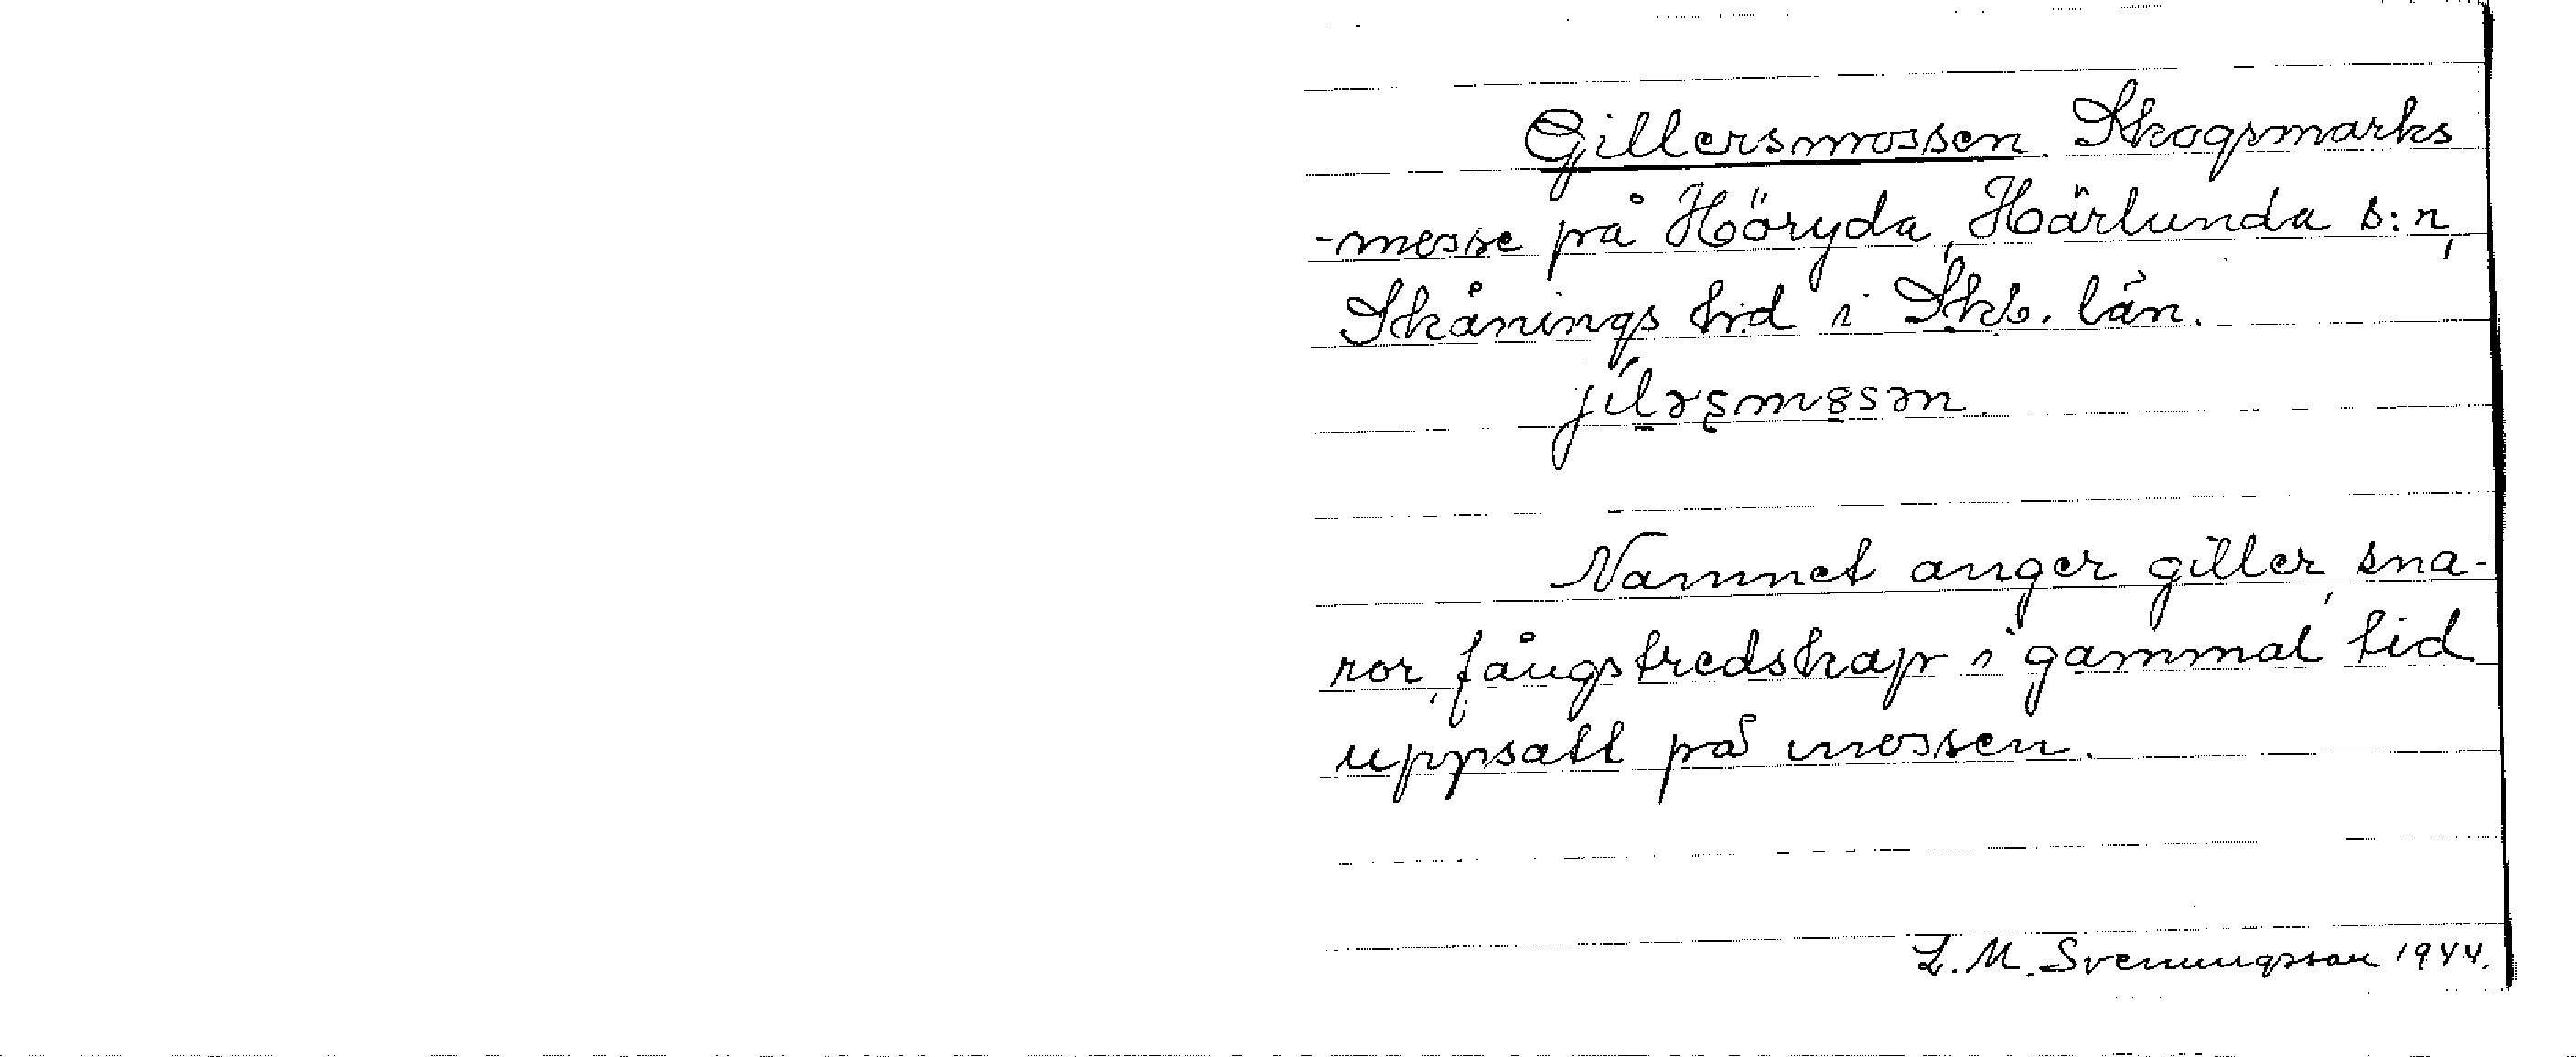 Gillersmossen. Skogsmarks
-mosse på Höryda, Härlunda s:n,
Skånings hd i Skb. län.
Namnet anger giller, sna-
ror, fångstredskap i gammal tid
uppsatt på mossen.
L. M. Svenungsson 1944.